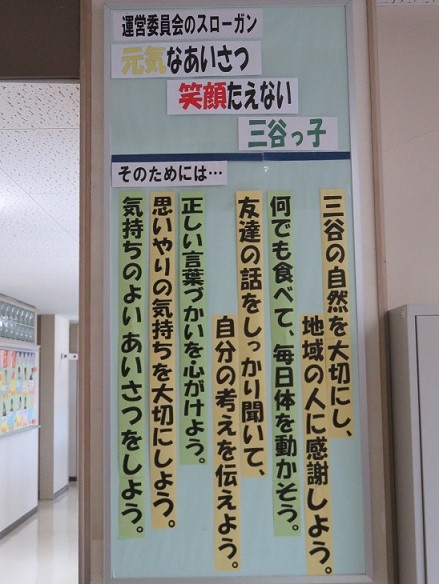 運営委員会のスローガン
元気なあいさつ
笑顔たえない
三谷っ子
そのためには…
三谷の自然を大切にし、
地域の人に感謝しよう。
何でも食べて、毎日体を動かそう。
友達の話をしっかり聞いて、
自分の考えを伝えよう。
正しい言葉づかいを心がけよう。
思いやりの気持ちを大切にしよう。
気持ちのよいあいさつをしよう。